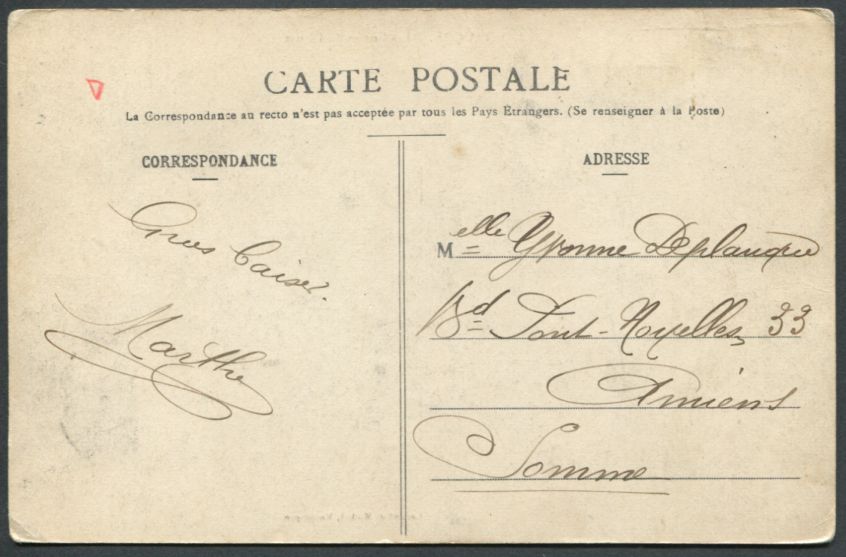 CARTE POSTALE
La Correspondance au recto n'est pas acceptée par tous les Pays Etrangers. (Se renseigner à la Poste)
CORRESPONDANCE
Gros baiser.
Marthe
ADRESSE
Melle Yvonne Deplanque
Bd Pont-Noyelles 33
Amiens
Somme